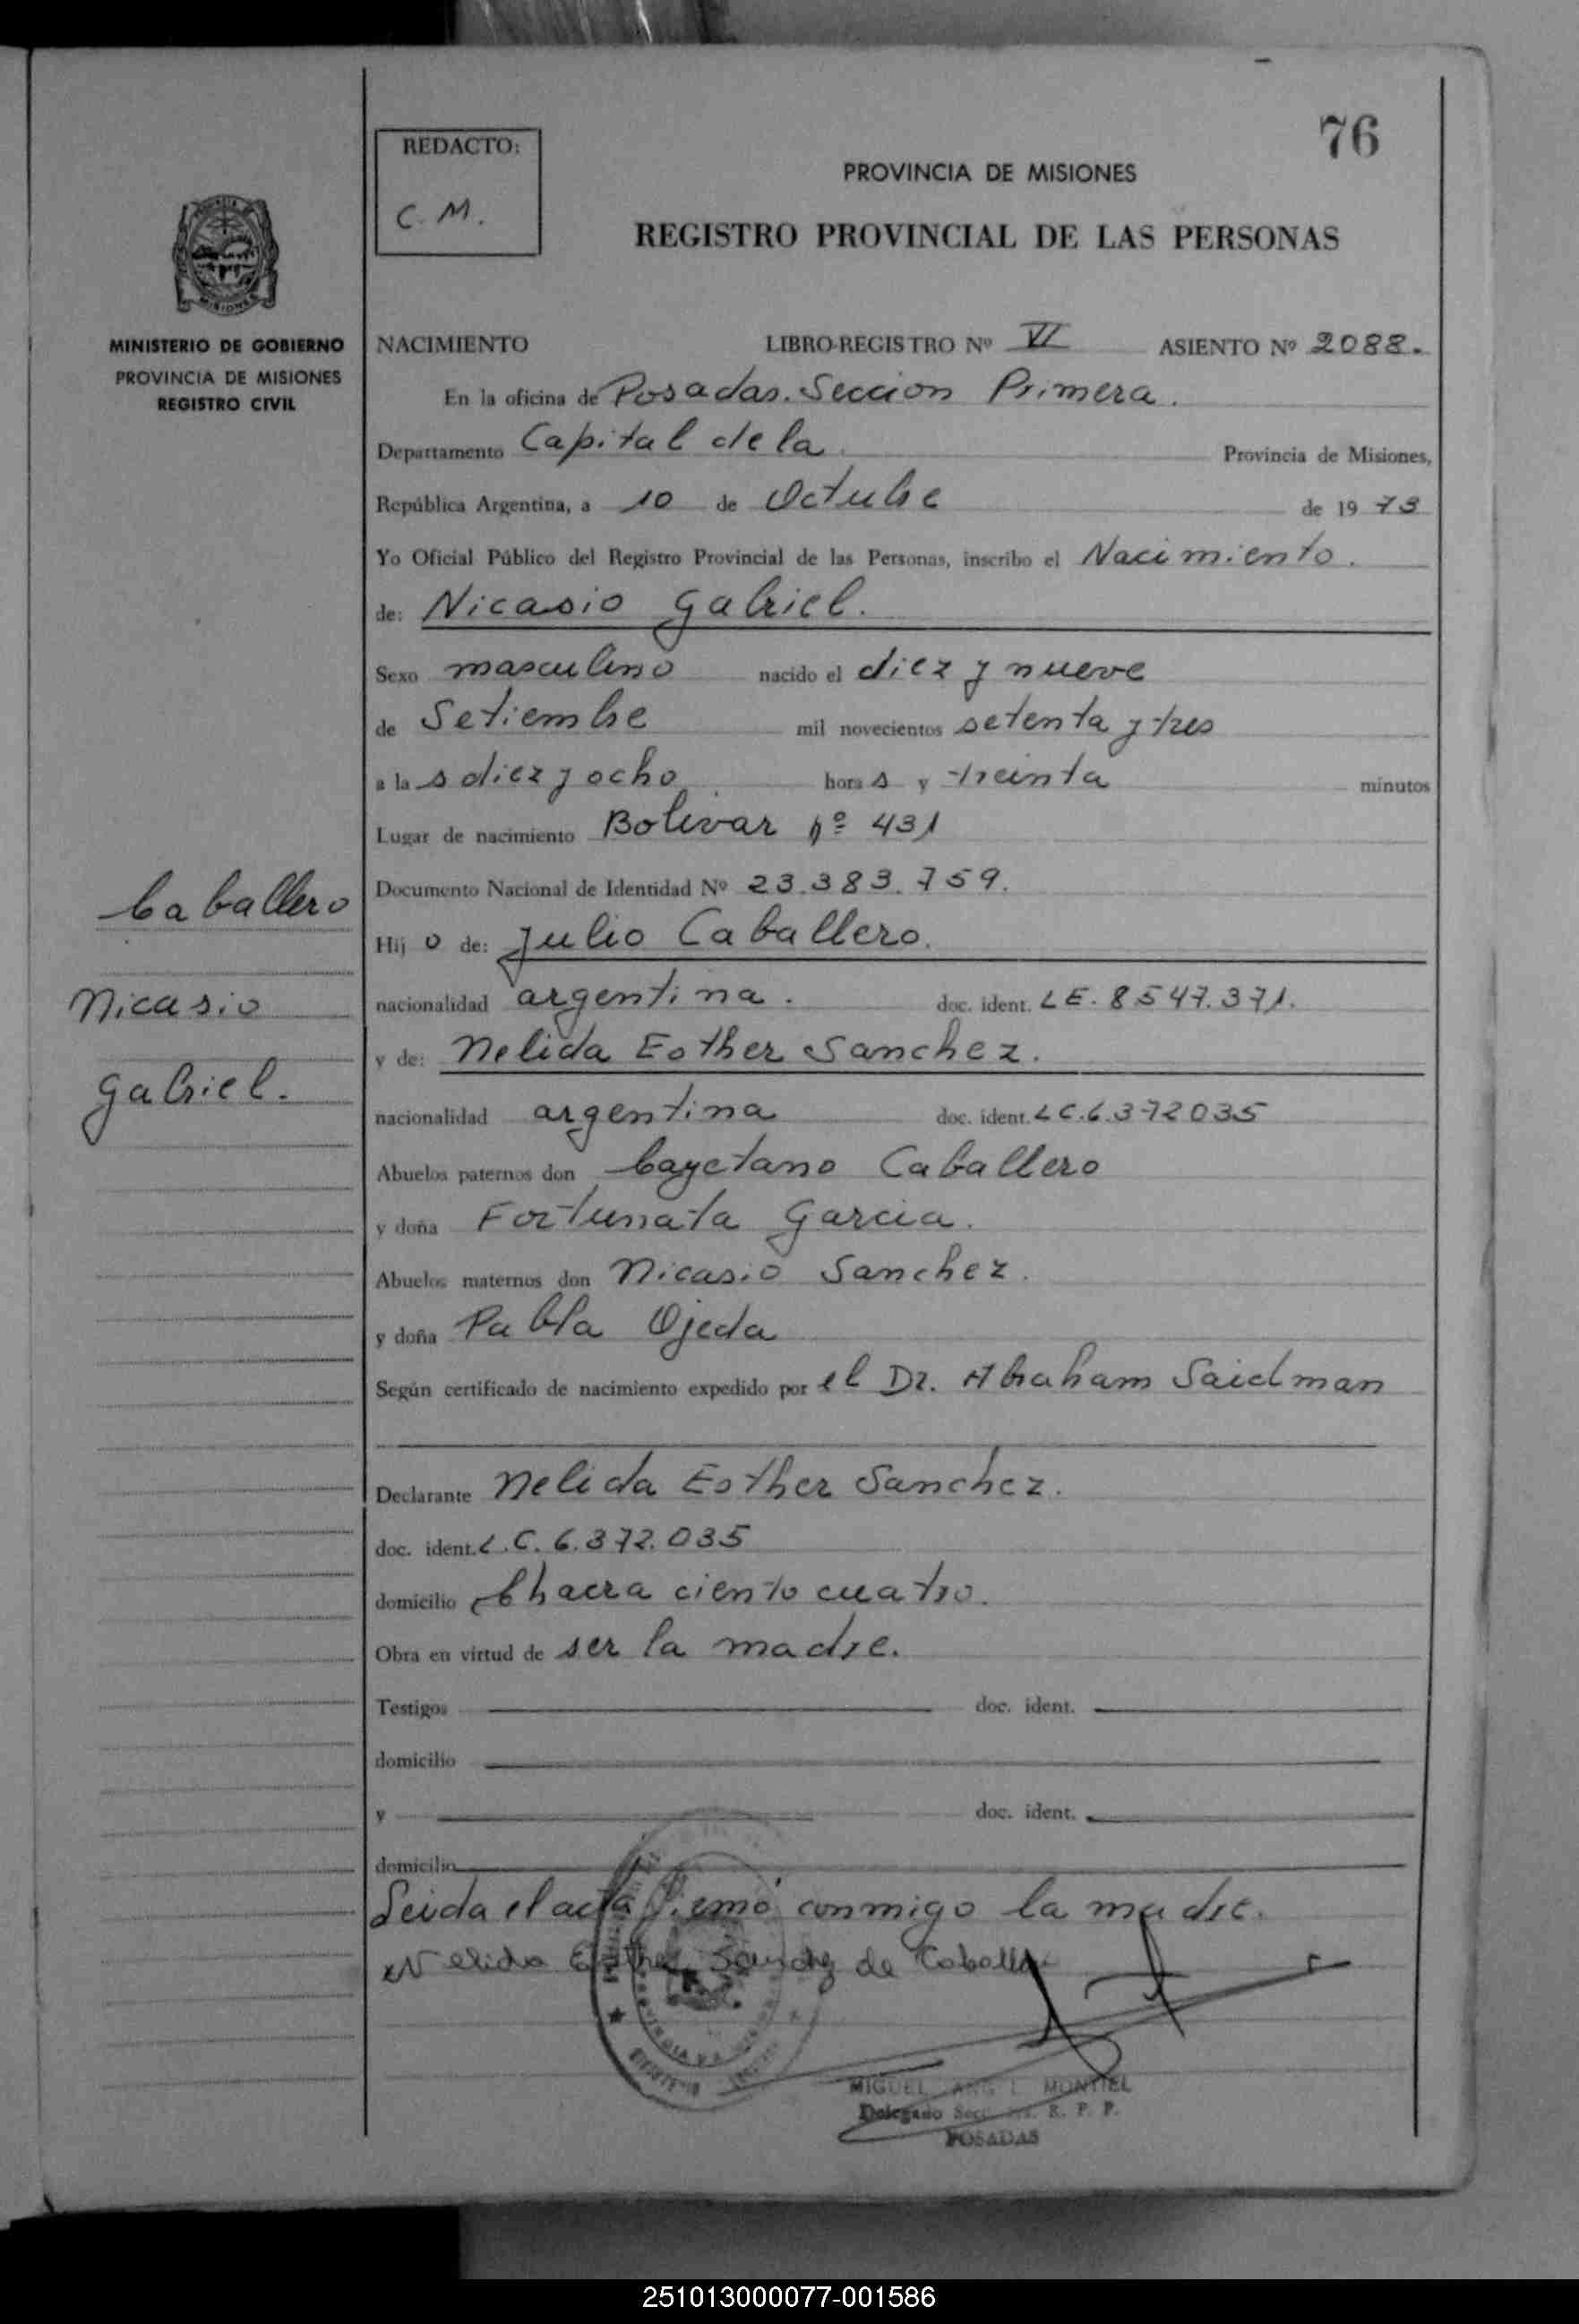 76
REDACTO:
C. M.
PROVINCIA DE MISIONES
REGISTRO PROVINCIAL DE LAS PERSONAS
MISIONES
MINISTERIO DE GOBIERNO
PROVINCIA DE MISIONES
REGISTRO CIVIL
NACIMIENTO LIBRO-REGISTRO Nº VI ASIENTO Nº 2088.
En la oficina de Posadas. Seccion Primera.
Departamento Capital de la Provincia de Misiones,
República Argentina, a 10 de Octubre de 1973
Yo Oficial Público del Registro Provincial de las Personas, inscribo el Nacimiento.
de: Nicasio Gabriel.
Sexo masculino nacido el diez y nueve
de Setiembre mil novecientos setenta y tres
a las diez y ocho horas y treinta minutos
Lugar de nacimiento Bolivar nº 431
Documento Nacional de Identidad Nº 23.383.759.
Caballero
Hijo de: Julio Caballero.
Nicasio
nacionalidad argentina. doc. ident. LE. 8547.371.
y de: Nelida Esther Sanchez.
Gabriel.
nacionalidad argentina doc. ident. LC.6.372035
Abuelos paternos don Cayetano Caballero
y doña Fortunata Garcia.
Abuelos maternos don Nicasio Sanchez.
y doña Pabla Ojeda
Según certificado de nacimiento expedido por el Dr. Abraham Saidman
Declarante Nelida Esther Sanchez.
doc. ident. L.C. 6.372.035
domicilio Chacra ciento cuatro.
Obra en virtud de ser la madre.
Testigos doc. ident.
domicilio
y doc. ident.
domicilio
Leida el acta firmó conmigo la madre.
Nelida Esther Sanchez de Caballero
MIGUEL ANGEL MONTIEL
Delegado Secc. R. P. P.
POSADAS
251013000077-001586